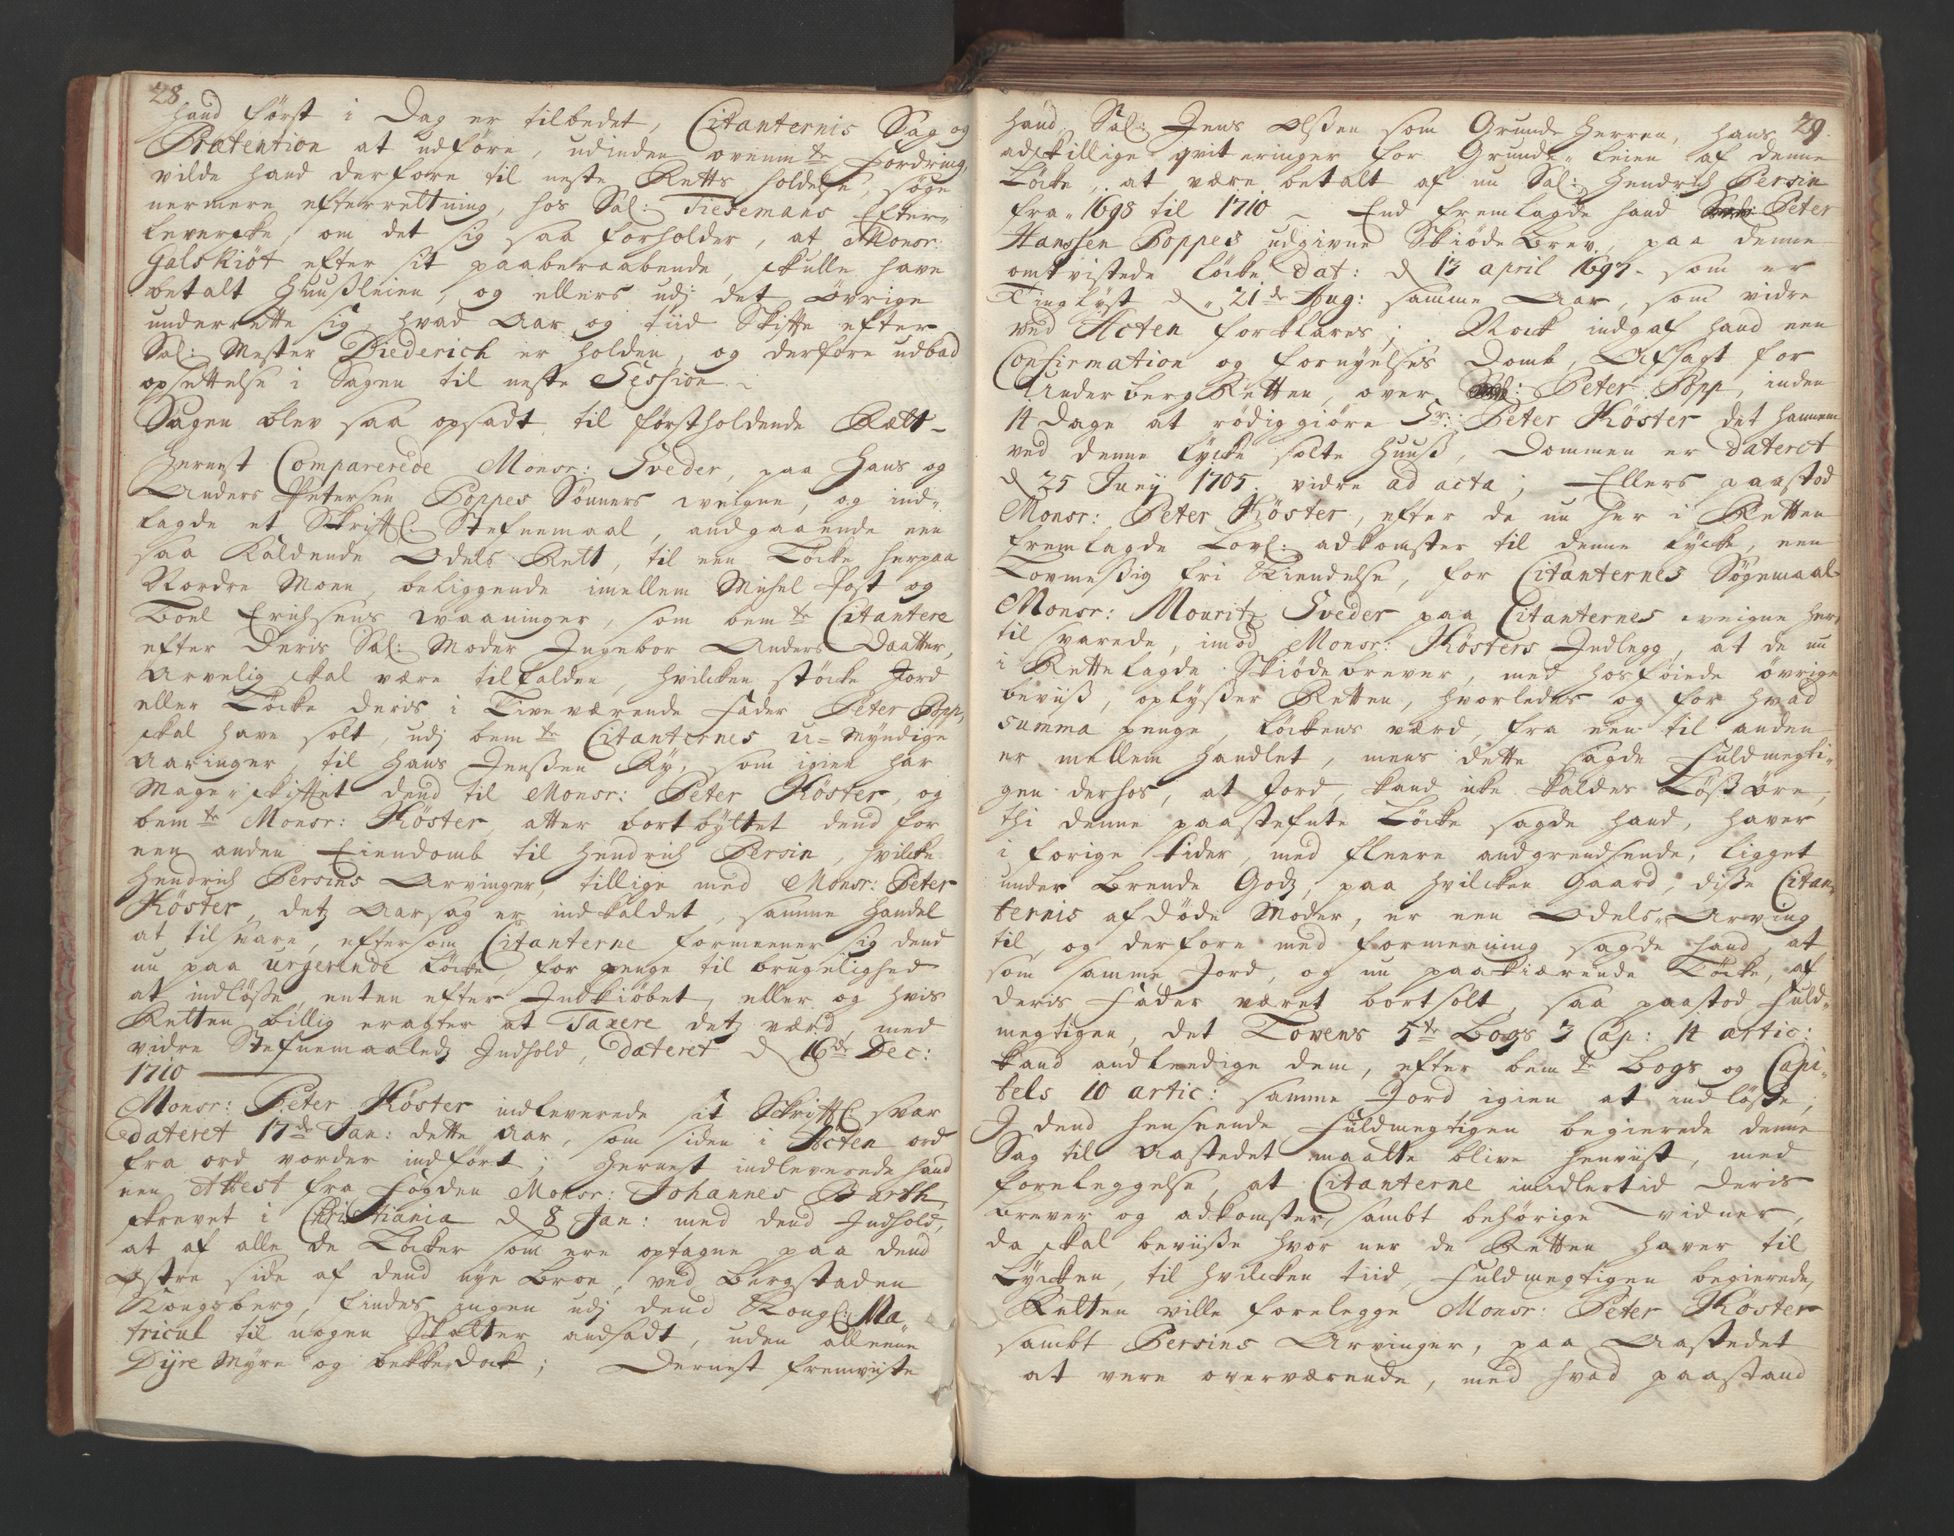 28
hand først i Dag er tilbedet, Citanternis Sag og
Prætention at udføre, udinden ovenm.te Fordring,
vilde hand derfore til neste Retts holdelse, søge
nermere efterrettning, hos Sal: Tiesemans Efter-
levercke, om det sig saa forholder, at Monsr:
Galskiøt efter sit paaberaabende, skulle have
betalt Huußleien, og ellers udj det øvrige
underrette sig, hvad Aar og tiid Skifte efter
Sal: Mester Diederich er holden, og derfore udbad
opsettelse i Sagen til neste Session
Sagen blev saa opsadt til førstholdende Rætt-
Hernest Comparerede Monsr: Sveder, paa Hans og
Anders Petersen Poppes Sønners veigne, og ind-
lagde et Skriftl: Stefnemaal, andgaaende een
saa kaldende Odels Rett, til een Løcke herpaa
Nordre Moen, beliggende imellem Mihel Fast og
Boel Erichsens waaninger, som bem.te Citantere
efter Deris Sal: Moder Ingebor Anders Daatter,
Arvelig skal være tilfalden, hvilcken støcke Jord
eller Løcke deris i Live værende Fader Peter Popp,
skal have solt, udj bem.te Citanternes U-Myndige
Aaringer, til Hans Jenßen Ry, som igien har
Mage-skiftet dend til Monsr: Peter Køster, og
bem.te Monsr: Køster, atter bortbyttet dend for
een anden Eiendomb til Hendrich Persin, hvilcke
Hendrich Persins Arvinger, tillige med Monsr: Peter
Køster, detz Aarsag er indkaldet, samme Handel
at tilsvare, eftersom Citanterne formeener sig dend
nu paa urgerende Løcke, for penge til brugelighed
at indløße, enten efter Indkiøbet, eller og hvis
Retten billig eragter at Taxere detz værd, med
vidre Stefnemaaledz Indhold, dateret d 16de Dec:
1710
Monsr: Peter Køster indleverede sit Skriftl: svar
dateret 17de Jan: dette Aar, som siden i Acten ord
fra ord vorder indført; Hernest indleverede hand
een Attest fra Fogden Monsr: Johannes Barth,
skrevet i Christiania d 8 Jan: med dend Indhold,
at af alle de Løcker som ere optagne paa dend
Østre side af dend nye Broe, ved Bergstaden
Kongsberg, findes ingen udj dend Kongl: Ma-
tricul til nogen Skatter andsadt, uden alleene
Dyre Myre og bekkedock; Dernest fremviste
29.
hand Sal: Jens Olßen som Grunde Herren, hans
adskillige qviteringer for Grunde-leien af denne
Løcke, at være betalt af nu Sal: Hendrich Persin
fra 1698 til 1710 - End fremlagde hand Peter
Hanssen Poppes udgivne Skiøde Brev, paa denne
omtvistede Løcke dat: d 13 april 1697. som er
Tinglyst d 21de Aug: samme Aar, som vidre
ved Acten forklares; Nock indgaf hand een
Confirmation og fornyelses Domb, Afsagt for
Underberg Retten, over Peter Popp, inden
14 Dage at rødiggiøre Sr: Peter Køster det hannem
ved denne lycke solte Huuß, Dommen er dateret
d 25 Juny 1705. vidre ad acta; Ellers paastod
Monsr: Peter Køster, efter de nu her i Retten
fremlagde Lovl: adkomster til denne lycke, een
Lovmeßig fri kiendelse, for Citanternes Søgemaal-
Monsr: Mouritz Sveder paa Citanternes veigne her
til svarede, imod Monsr: Køsters Indlegg, at de nu
i Rettelagde Skiødebrever, med hosføiede øvrige
beviß, oplyßer Retten, hvorledes og for hvad
summa penge, løckens værd, fra een til anden
er mellem handlet, mens dette sagde Fuldmegti-
gen derhos, at Jord, kand icke kaldes Løßøre,
thi denne paastefnte Løcke sagde hand, haver
i forige tider, med fleere andgrendsende, ligget
under Brende Godz, paa hvilcken Gaard, diße Citan-
ternis afdøde Moder, er een Odels-Arving
til, og derfore med formeening sagde hand, at
som samme Jord, og nu paakiærende Løcke, af
deris Fader været bortsolt, saa paastod Fuld-
megtigen, det Lovens 5te Bogs 3 Cap: 14 artic:
kand andleedige dem, efter bem.te Bogs og Capi-
tels 10 artic: samme Jord igien at indløße;
I dend henseende Fuldmegtigen begierede denne
Sag til Aastedet maatte blive henviist, med
foreleggelse, at Citanterne imidlertid deris
brever og adkomster, sambt behørige vidner,
da skal beviiße hvor ner de Retten haver til
Lycken, til hvilcken tiid, Fuldmegtigen begierede,
Retten ville forelegge Monsr: Peter Køster
sambt Persins Arvinger, paa Aastedet
at vere overværende, med hvad paastand